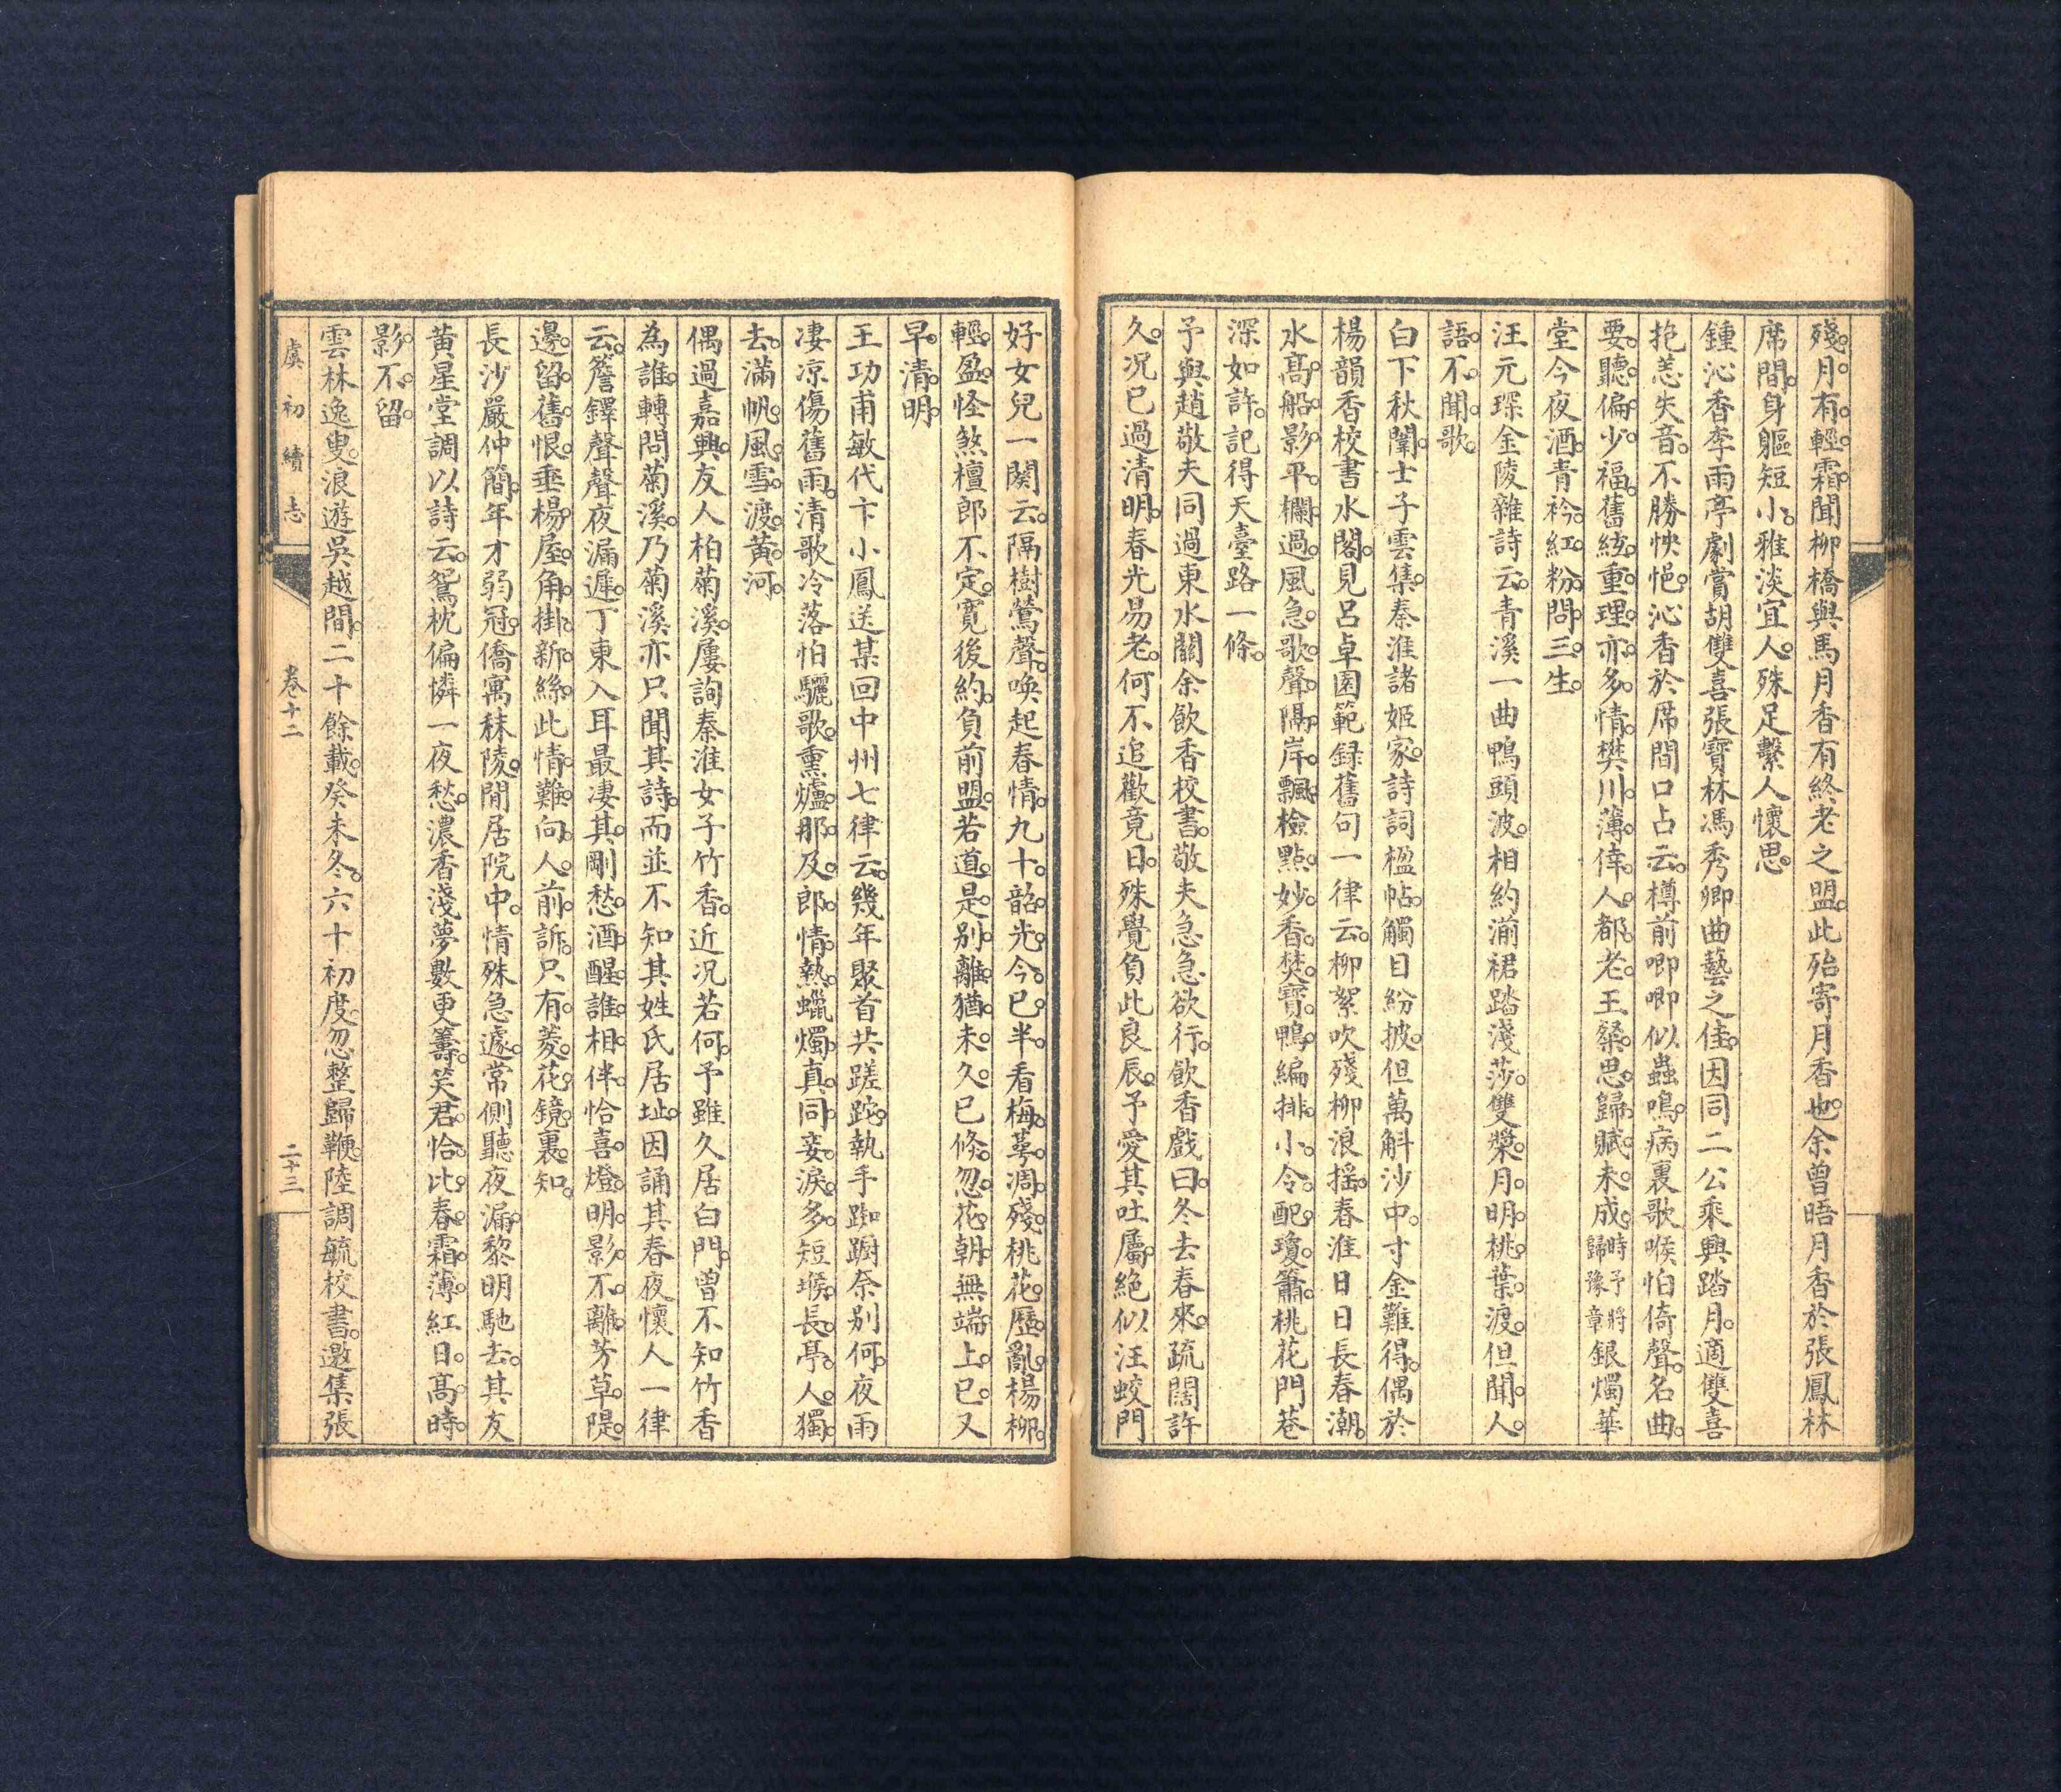 殘。月。有。輕。霜。聞柳橋與馬月香有終老之盟。此殆寄月香也。余曾晤月香於張鳳林
席間。身軀短小。雅淡宜人。殊足繫人懷思。
鍾沁香李雨亭劇賞胡雙喜張寶林馮秀卿曲藝之佳。因同二公乘興踏月。適雙喜
抱恙失音。不勝怏悒。沁香於席間口占云。樽前唧唧似蟲鳴。病裏歌喉怕倚聲。名曲。
要。聽。偏。少。福。舊絃。重。理。亦。多。情。樊川。薄。倖。人。都。老。王粲。思。歸。賦。未。成。時予將歸豫章銀燭華
堂今夜。酒。青衿。紅。粉。問。三。生。
汪元琛金陵雜詩云。青溪一曲鴨頭波。相約湔裙踏淺莎。雙槳。月。明。桃。葉。渡。但聞。人。
語。不。聞。歌。
白下秋闈。士子雲集。秦淮諸姬家。詩詞楹帖。觸目紛披。但萬斛沙中。寸金難得。偶於
楊韻香校書水閣。見呂卓園範録舊句一律云。柳絮吹殘柳浪搖。春淮日日長春潮。
水。高。船。影。平。欄。過。風急。歌。聲。隔。岸。飄。檢點。妙。香。焚。寶。鴨。編排。小。令。配。瓊。簫。桃花門巷
深如許。記得天臺路一條。
予與趙敬夫同過東水關余飲香校書。敬夫急急欲行。飲香戲曰。冬去春來。疏闊許
久。況已過清明。春光易老。何不追歡竟日。殊覺負此良辰。予愛其吐屬。絕似汪蛟門
好女兒一闋云。隔樹鶯聲。喚起春情。九十。韶。光。今。已。半。看梅。萼。凋。殘。桃花。歷。亂。楊柳。
輕。盈。怪煞檀郎不定。寬後約。負前盟。若道。是。别。離。猶。未。久。已倏。忽。花。朝。無端。上。巳。又
早。清。明。
王功甫敏代卞小鳳送某回中州七律云。幾年聚首共蹉跎。執手踟躕奈别何。夜雨
凄凉傷舊雨。清歌冷落怕驪歌。熏爐。那。及。郎。情。熱。蠟燭。真。同。妾。淚。多。短堠。長。亭。人。獨。
去。滿帆。風。雪。渡。黃。河。
偶過嘉興。友人柏菊溪。屢詢秦淮女子竹香。近况若何。予雖久居白門。曾不知竹香
為誰。轉問菊溪。乃菊溪亦只聞其詩。而並不知其姓氏居址。因誦其春夜懷人一律
云。簷鐸聲聲夜漏遲。丁東入耳最凄其。剛愁。酒。醒。誰。相。伴。恰喜。燈。明。影。不。離。芳草。隄。
邊。留。舊。恨。垂楊。屋。角。掛。新。絲。此情。難。向。人。前。訴。只有。菱。花。鏡。裏。知。
長沙嚴仲簡。年才弱冠。僑寓秣陵。閒居院中。情殊急遽。常側聽夜漏。黎明馳去。其友
黃星堂調以詩云。鴛枕偏憐一夜愁。濃香淺夢數更籌。笑君。恰。比。春。霜。薄。紅日。高。時。
影。不。留。
雲林逸叟。浪遊吳越間。二十餘載。癸未冬。六十初度。忽整歸鞭。陸調毓校書。邀集張
虞初續志
卷十二
二十三